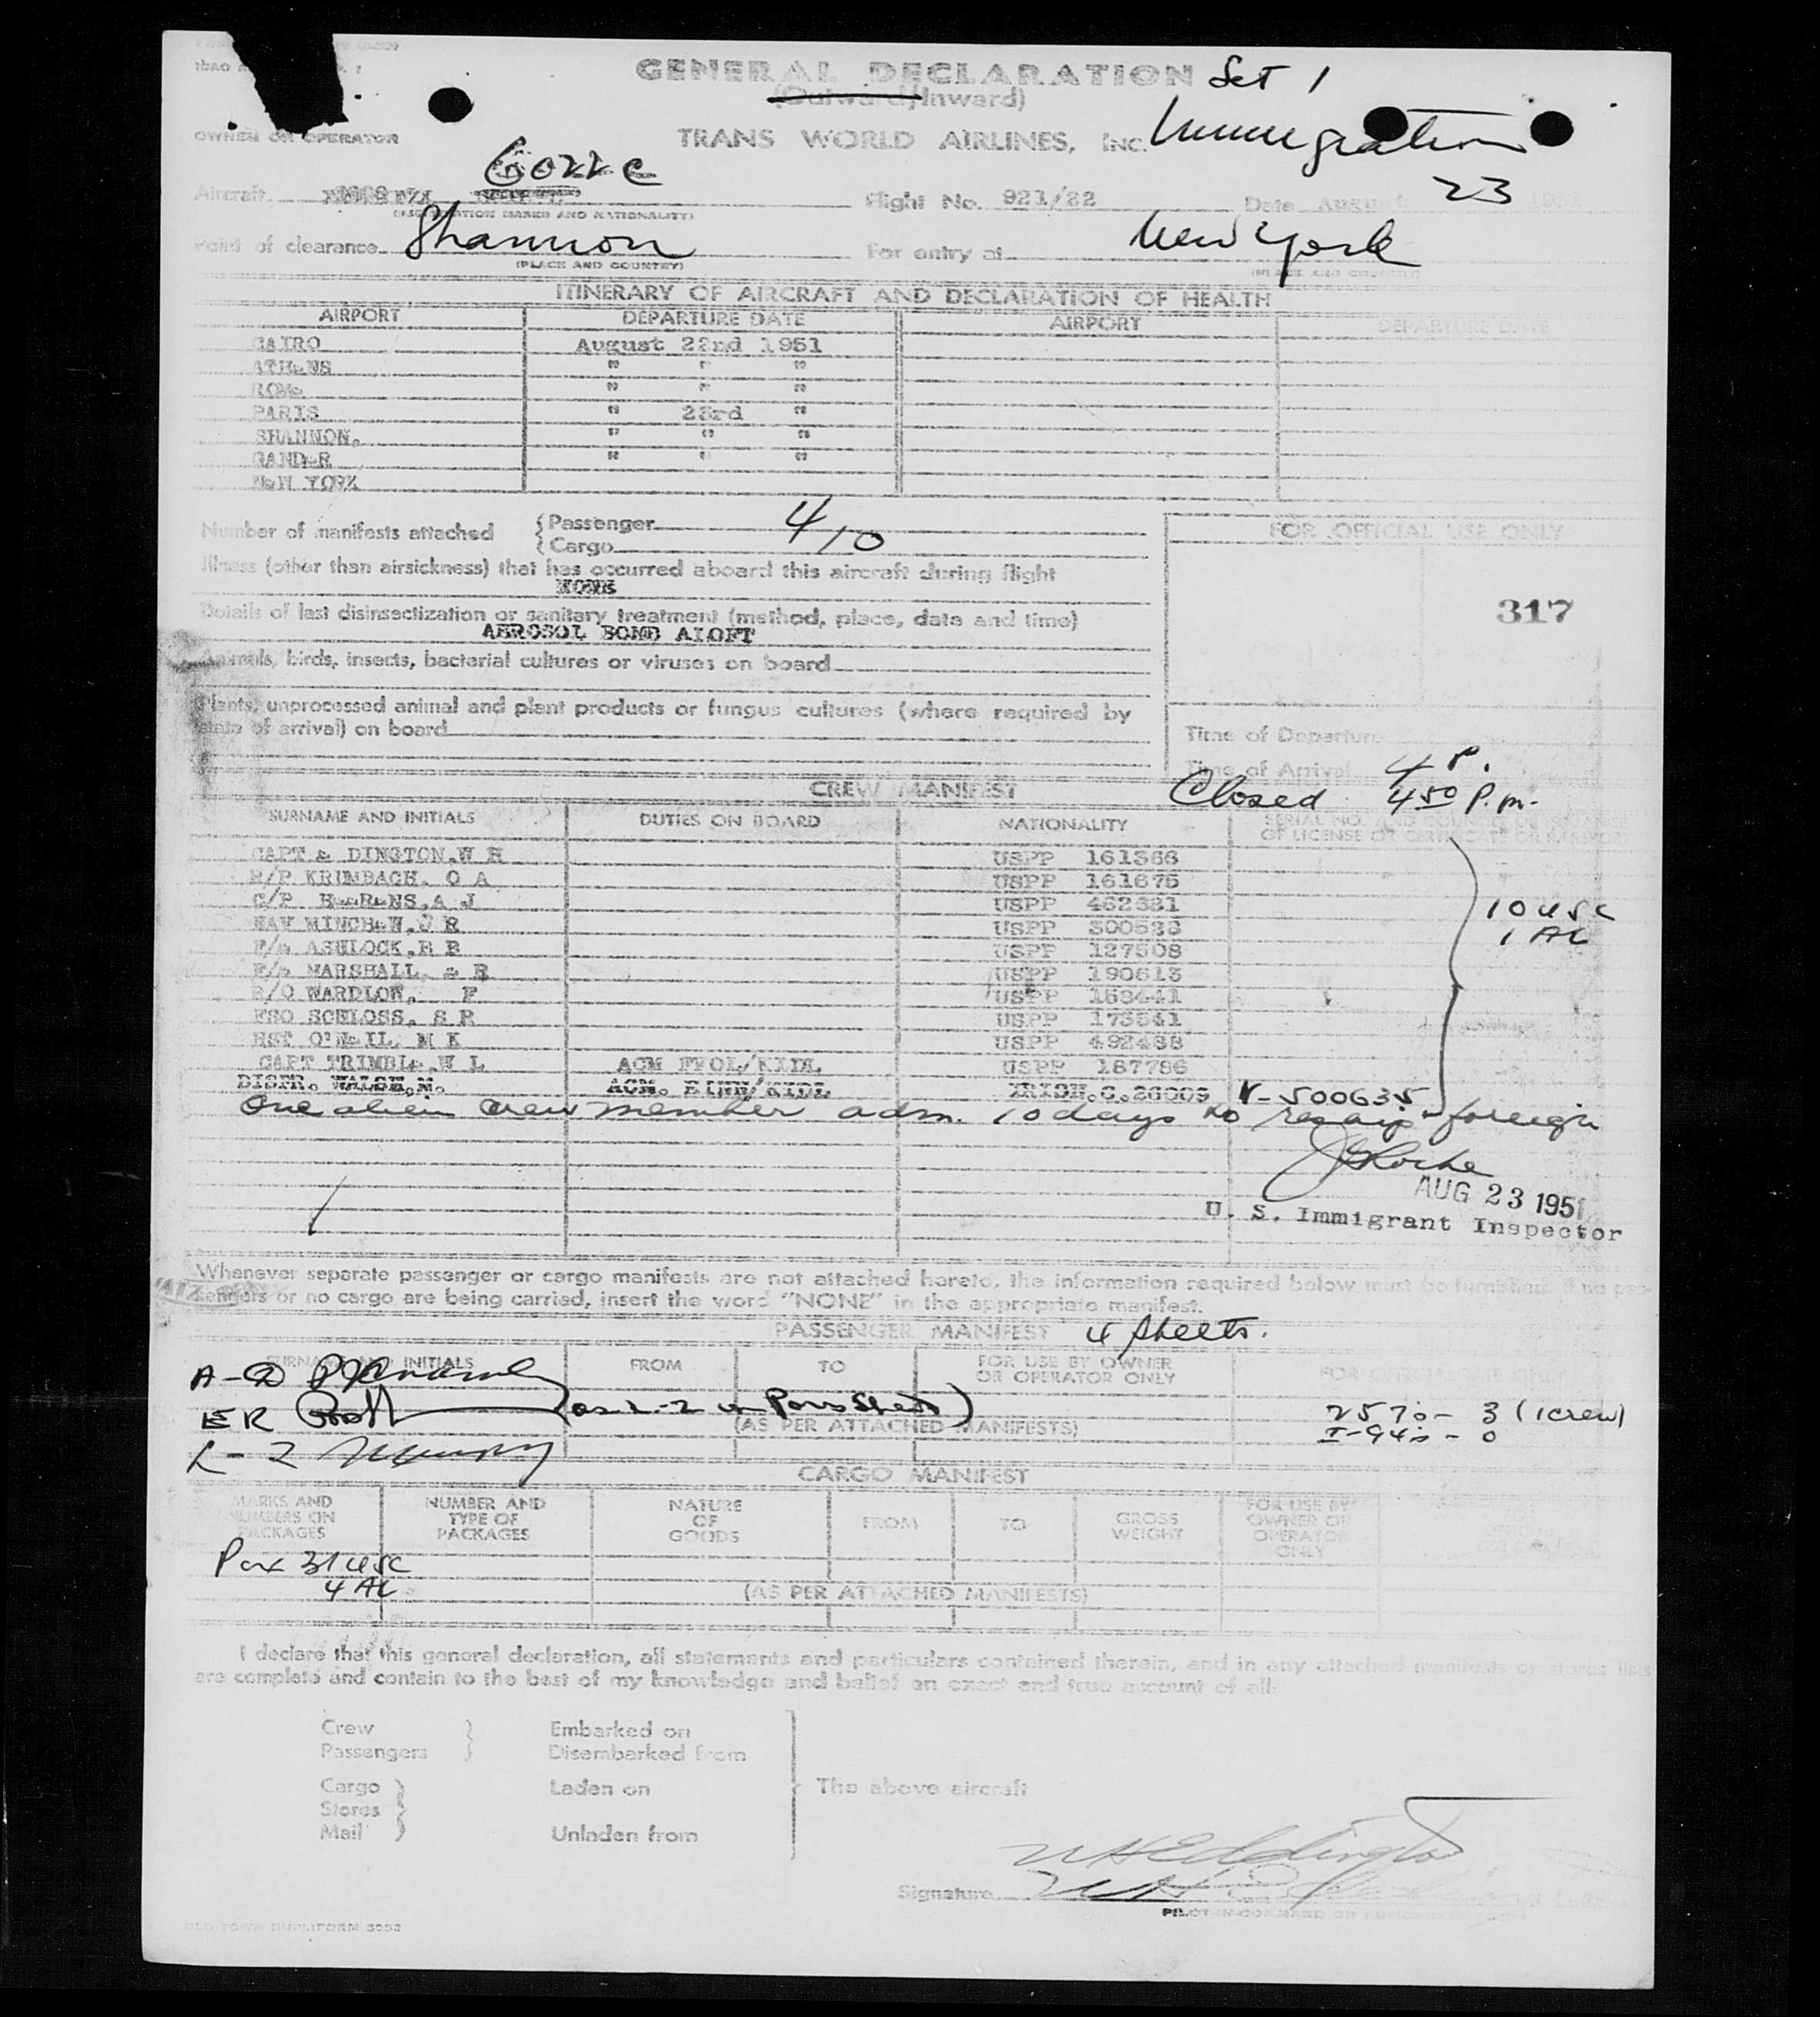 GENERAL DECLARATION Set 1
(Outward/Inward)
Immigration
OWNER OR OPERATOR TRANS WORLD AIRLINES, INC.
Aircraft Flight No. 921/22 Date August 23
(REGISTRATION MARKS AND NATIONALITY)
Point of clearance Shannon For entry at New York
(PLACE AND COUNTRY) (PLACE AND COUNTRY)
ITINERARY OF AIRCRAFT AND DECLARATION OF HEALTH
AIRPORT DEPARTURE DATE AIRPORT DEPARTURE DATE
CAIRO August 22nd 1951
ATHENS " " "
ROME " " "
PARIS " 23rd "
SHANNON. " " "
GANDER " " "
NEW YORK
Number of manifests attached { Passenger 4
{ Cargo 10
FOR OFFICIAL USE ONLY
Illness (other than airsickness) that has occurred aboard this aircraft during flight
NONE
317
Details of last disinsectization or sanitary treatment (method, place, date and time)
AEROSOL BOMB ALOFT
Animals, birds, insects, bacterial cultures or viruses on board
Plants, unprocessed animal and plant products or fungus cultures (where required by
state of arrival) on board
Time of Departure
Time of Arrival 4 P.
CREW MANIFEST Closed 4 50 P.m.
SURNAME AND INITIALS DUTIES ON BOARD NATIONALITY
OF LICENSE OR CERTIFICATE
CAPT E DINGTON,W H USPP 161366
R/P KRIMBACH, O A USPP 161675
C/P HEERENS,A J USPP 462381
NAV MINCHEW,J R USPP 300528
F/E ASHLOCK,R B USPP 127508
F/E MARSHALL, E R USPP 190613
R/O WARDLOW, F USPP
FSO SCHLOSS, S R USPP 173541
HST O'NEIL, M K USPP 492488
CAPT TRIMBLE,W L ACM FFOL/KIDL USPP 187786
DISPR. WALSH,M. ACM. EINN/KIDL IRISH.C.26009 V-500635
10 USC
1 AL
One alien crew member adm. 10 days to reship foreign
AUG 23 1951
U. S. Immigrant Inspector
Whenever separate passenger or cargo manifests are not attached hereto, the information required below must be furnished. If no pas-
sengers or no cargo are being carried, insert the word "NONE" in the appropriate manifest.
PASSENGER MANIFEST 4 sheets.
SURNAME AND INITIALS FROM TO FOR USE BY OWNER
OR OPERATOR ONLY FOR OFFICIAL USE ONLY
A-D
ER
(AS PER ATTACHED MANIFESTS)
257 - 3 (1 crew)
I-94 - 0
L-Z
CARGO MANIFEST
MARKS AND
NUMBERS ON
PACKAGES NUMBER AND
TYPE OF
PACKAGES NATURE
OF
GOODS FROM TO GROSS
WEIGHT FOR USE BY
OWNER OR
OPERATOR
ONLY
Pax 31 USC
4 AL
(AS PER ATTACHED MANIFESTS)
I declare that this general declaration, all statements and particulars contained therein, and in any attached manifests or stores lists
are complete and contain to the best of my knowledge and belief an exact and true account of all:
Crew } Embarked on
Passengers } Disembarked from
Cargo } Laden on The above aircraft
Stores }
Mail } Unladen from
W H Eddington
Signature
PILOT IN COMMAND OR